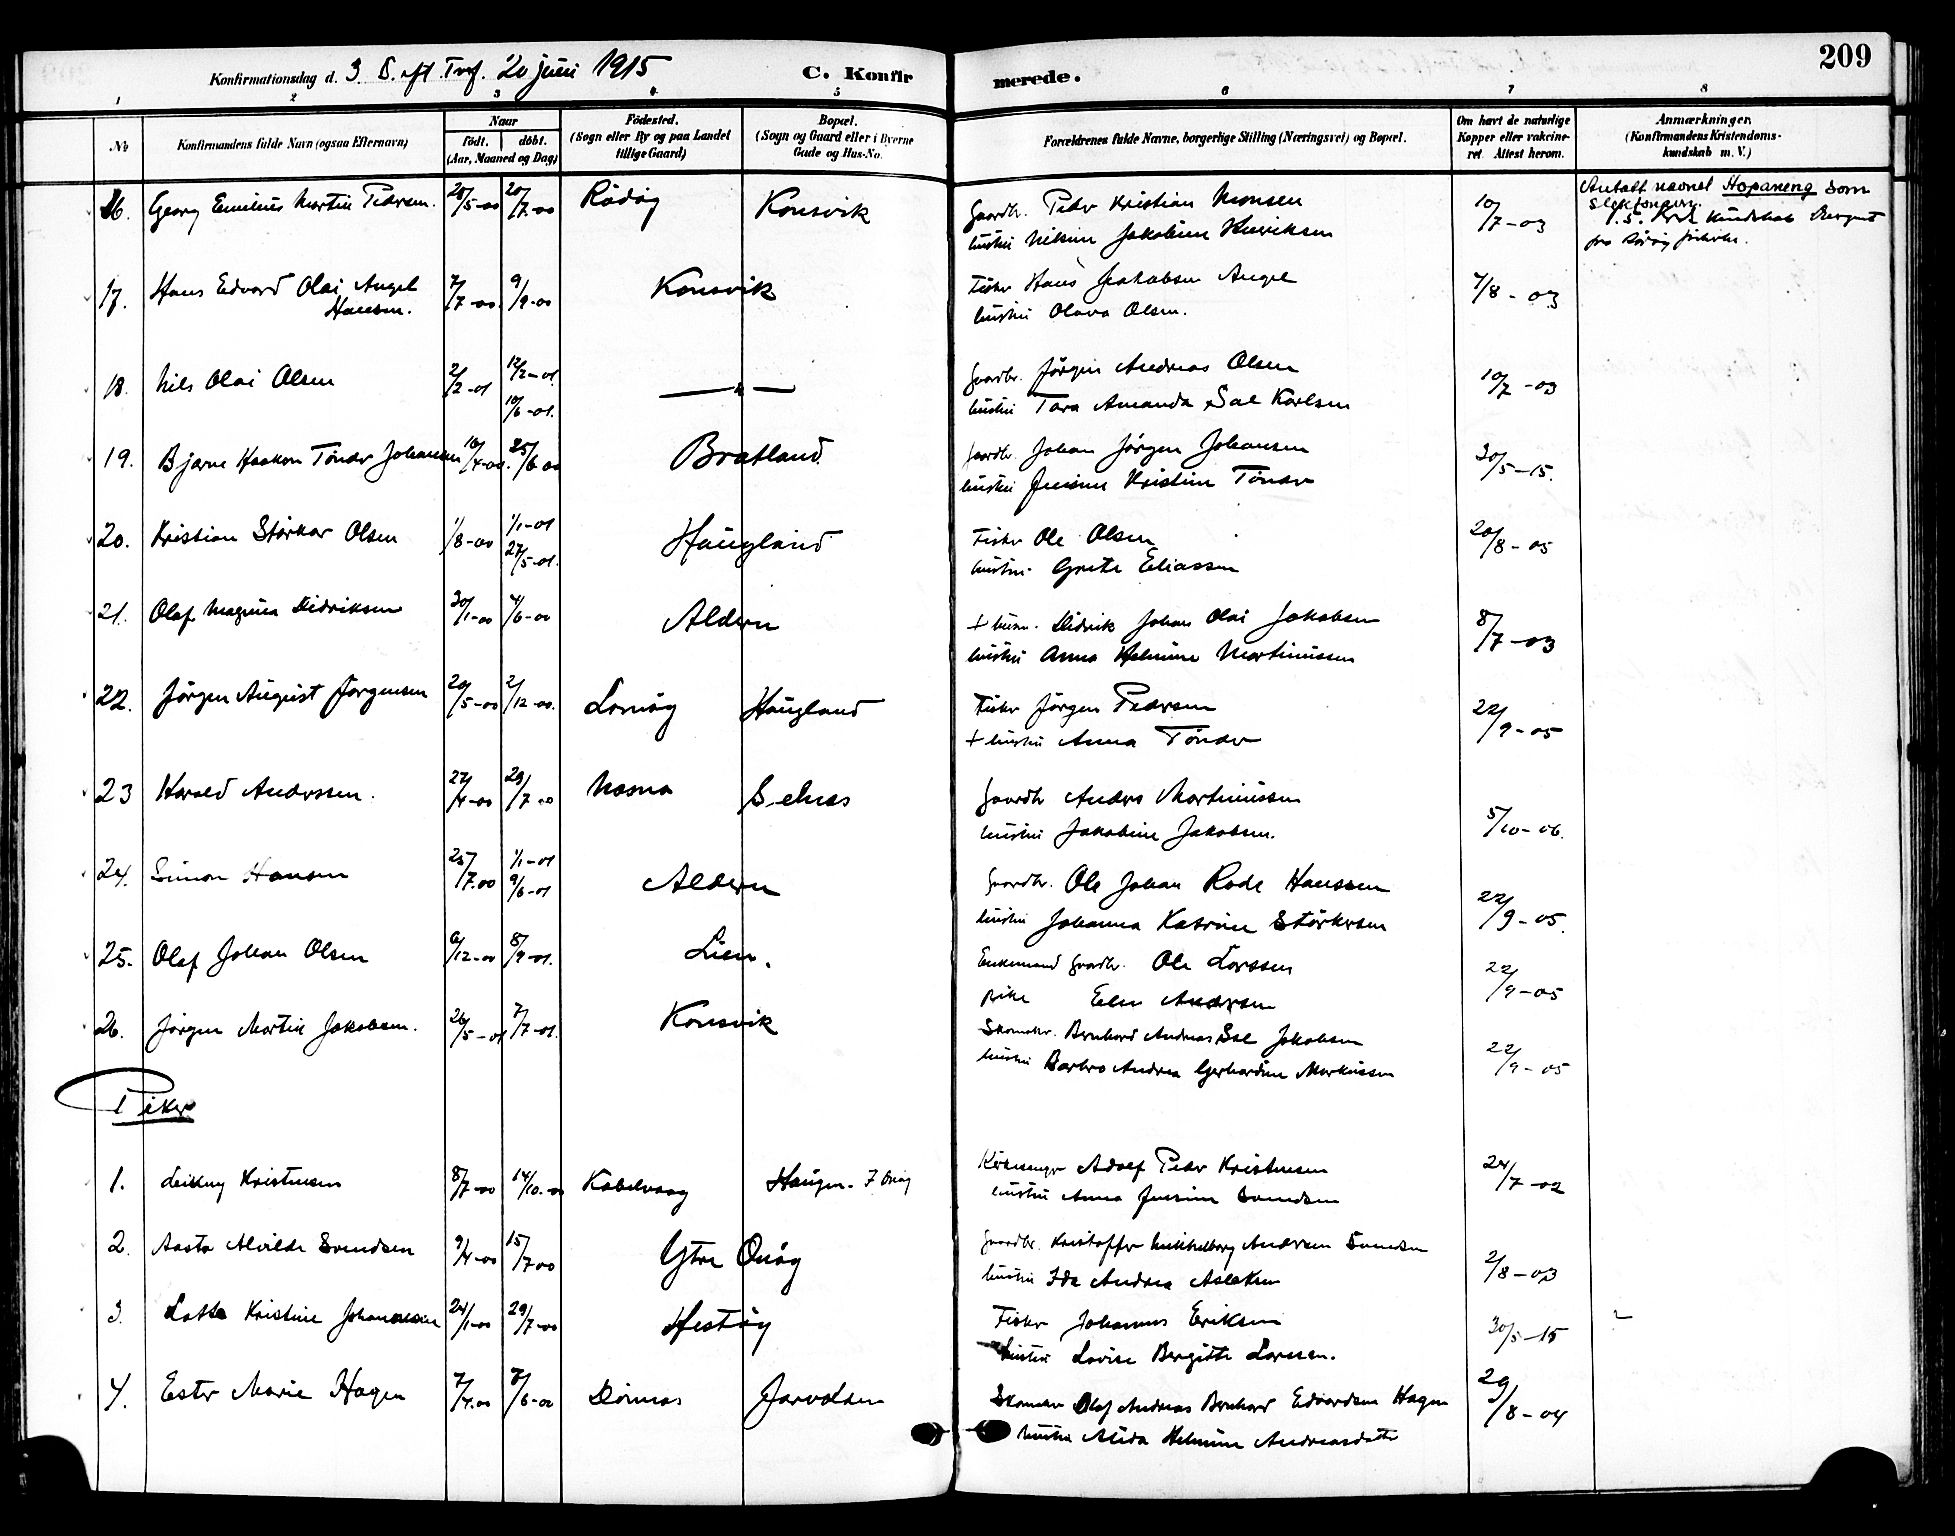 209
Konfirmationsdag d. 3 S. eft. Tref. 20 juni 1915 C. Konfirmerede.
1 2 3 4 5 6 7 8
No
Konfirmandens fulde Navn (ogsaa Efternavn)
Naar
født. døbt.
(Aar, Maaned og Dag)
Fødested.
(Sogn eller By og paa Landet
tillige Gaard)
Bopæl.
(Sogn og Gaard eller i Byerne
Gade og Hus-No.
Forældrenes fulde Navne, borgerlige Stilling (Næringsvei) og Bopæl.
Om havt de naturlige
Kopper eller vakcine-
ret. Attest herom.
Anmærkninger.
(Konfirmandens Kristendoms-
kundskab m. V.)
16. Georg Emilius Martin Pedersen. 20/5-00 20/7-00 Rødøy Konsvik Gaardbr. Peder Kristian Monsen 10/7-03 Antatt navnet Hopaneng som
slektsnavn.
hustru Nikine Jakobine Henriksen
17. Hans Edvard Olai Angel 7/7-00 9/9-00 Konsvik Fisker Hans Jakobsen Angel 7/8-03
Hansen. hustru Olava Olsen.
18. Nils Olai Olsen 2/2-01 12/2-01. — " — Gaardbr. Jørgen Andreas Olsen 10/7-03
10/6-01. hustru Tora Amanda Sal Karlsen
19. Bjarne Haakon Tønder Johansen 16/4-00. 25/6-00 Bratland Gaardbr. Johan Jørgen Johansen 30/5-15.
hustru Jensine Kristine Tønder
20. Kristian Størker Olsen 1/8-00 1/1-01 Haugland Fisker Ole Olsen 20/8-05
27/5-01. hustru Grete Eliassen
21. Olaf Magnus Didriksen 30/1-00 4/6-00 Aldern + husm. Didrik Johan Olai Jakobsen 8/7-03
hustru Anna Helmine Martinussen
22. Jørgen August Jørgensen 20/5-00 2/12-00. Lovøy Haugland Fisker Jørgen Pedersen 22/9-05
+ hustru Anna Tønder
23 Harald Anderssen. 27/4-00 29/7-00 Nesna Selnes Gaardbr Anders Martinussen 5/10-06.
hustru Jakobine Jakobsen.
24. Simon Hansen 25/7.00 1/1-01 Aldern Gaardbr. Ole Johan Rode Hanssen 22/9-05.
9/6-01 hustru Johanna Katrine Størkersen
25. Olaf Johan Olsen 6/12-00 8/9-01. Lien. Enkemand Gaardbr. Ole Larssen 22/9-05
pike Elen Andersen
26. Jørgen Martin Jakobsen. 26/5-01 7/7-01. Konsvik Skomaker. Bernhard Andreas Sal Jakobsen 22/9-05
hustru Barbro Andrea Gerhardine Markussen
Piker
1. Kristensen 8/7-00 14/10.-00 Kabelvaag Haugen. Adolf Peder Kristensen 24/7-02
hustru Anna Jensine Svendsen
2. Aasta Alvilde Svendsen 9/4-00 15/7 00 Ytre Onøy Gaardbr. Kristoffer Andersen Svendsen 2/8-03
hustru Ida Andrea Aslaksen
3. Lotte Kristine Johannessen 24/1-00 29/7-00 Hestøy Fisker Johannes Eriksen 30/5-15
hustru Lovise Bergitte Larssen.
4. Ester Marie Hagen 7/4.00 7/6-00 Dønnes Jarvolsen Skomaker Olaf Andreas Bernhard Edvardsen Hagen 29/8-04
hustru Alida Helmine Andreasdatter